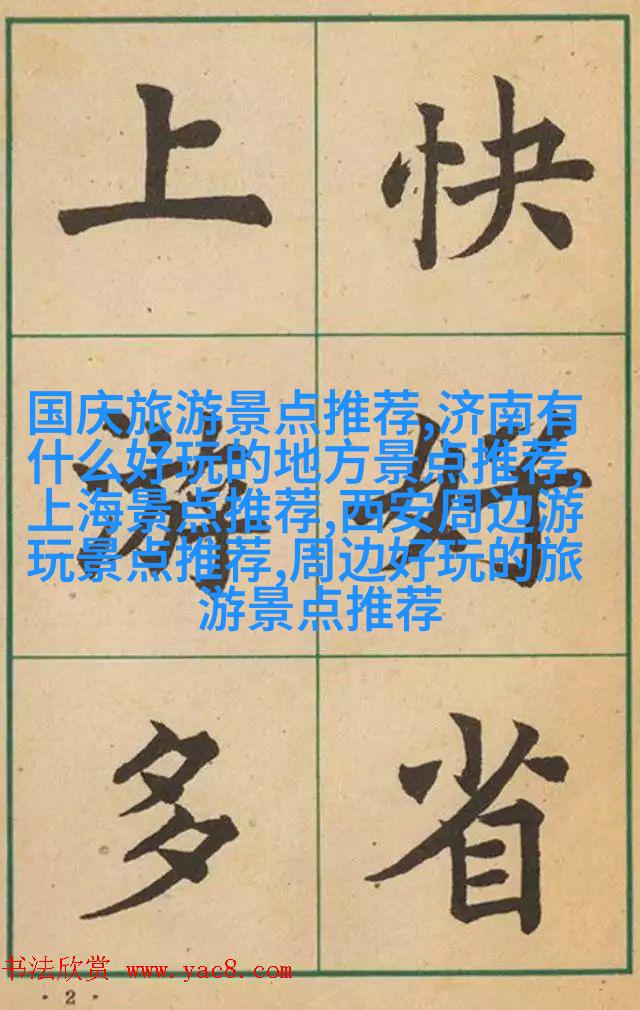 上游多
快好省
国庆旅游景点推荐,济南有
什么好玩的地方景点推荐,
上海景点推荐,西安周边游
玩景点推荐,周边好玩的旅
游景点推荐
书法欣赏 www.yac8.com
· 2 ·